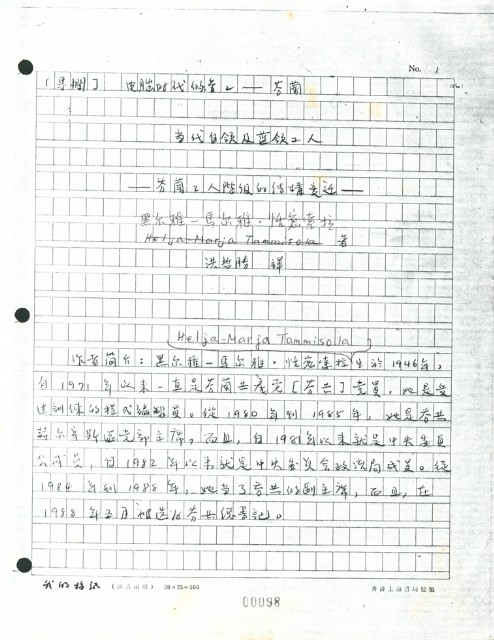 No. 1
[專欄] 电脑时代的劳工——芬蘭
当代白领及蓝领工人
——芬蘭工人階級的結構变迁——
黑尔雅-馬尔雅·怡密索拉
Helja-Marja Tammisola 著
洪哲勝 譯
Helja-Marja Tammisola
作者简介:黑尔雅-馬尔雅·怡密索拉生於1946年,
自1971年以来一直是芬蘭共產党[芬共]党員。她是受
过訓练的程式編写員。從1980年到1985年,她是芬共
赫尔辛斯区党部主席,而且,自1981年以来就是中央委員
会成員,自1982年以来就是中央委員会政治局成員。從
1984年到1988年,她当了芬共的副主席,而且,在
1988年五月被选为芬共總書記。
我的稿紙 20×25=500 香港上海書局監製
00098